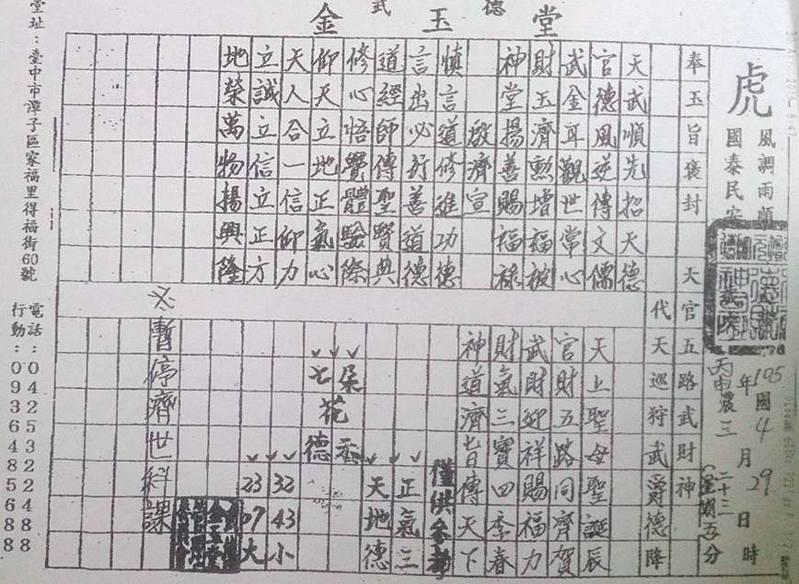 武 德
金玉堂
虎
風調雨順
國泰民安
105年4月29日時
國
丙申農三二十三(星期五)分
奉玉旨褒封 天官五路武財神
代天巡狩武爵德降
天武順先招天德
官德風逆傳文儒
武金耳觀世常心
財玉濟勲增福被
神堂揚善賜福祿
啟濟宣
慎言道修進功德
言出必行善道德
道經師傳聖賢典
修心悟覺體驗際
仰天立地正氣心
天人合一信仰力
立誠立信立正方
地榮萬物揚興隆
天上聖母聖誕辰
官財五路同齊賀
武財迎祥賜福力
財氣三寶四季春
神道濟昔傳天下
僅供參考
正氣三
天地德
七朶
花
德香
32 43 小
23 07 大
※暫停濟世科課
電話：0425322488
行動：0936485688
堂址：臺中市潭子區家福里得福街60號